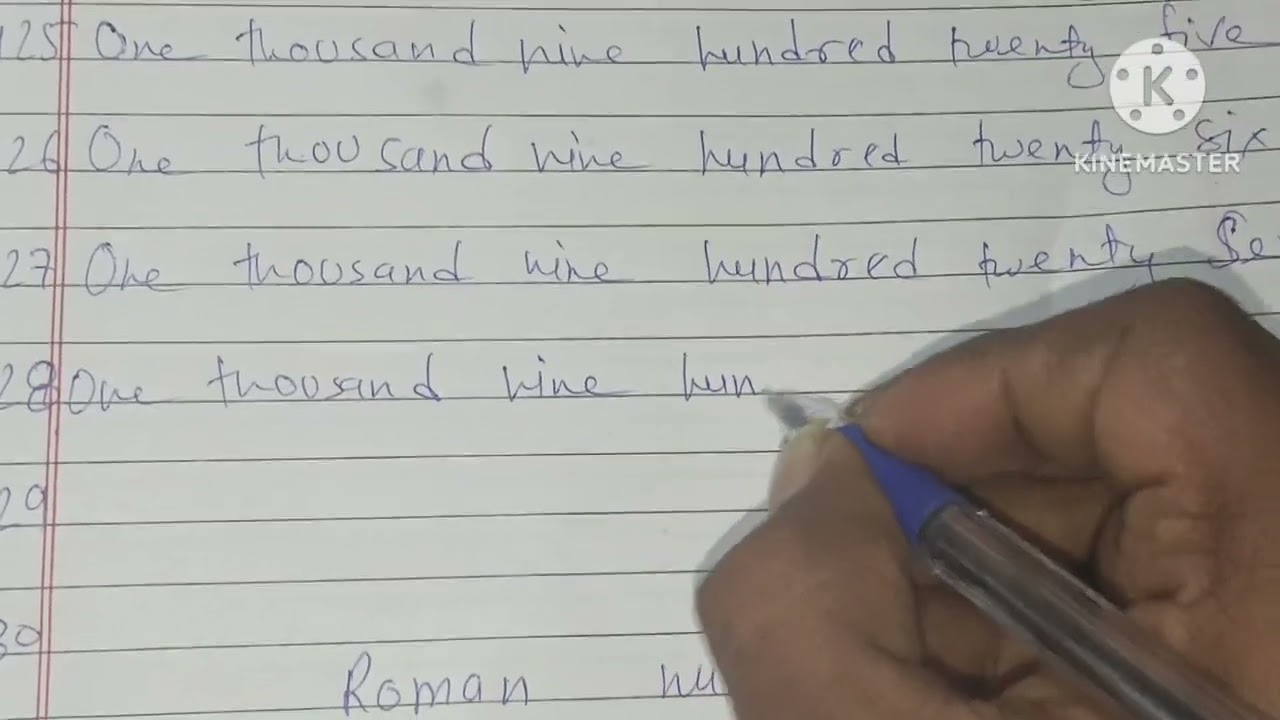 25 One thousand nine hundred twenty five
K
26 One thousand nine hundred twenty six
KINEMASTER
27 One thousand nine hundred twenty Se
28 One thousand nine hun
29
30
Roman nu